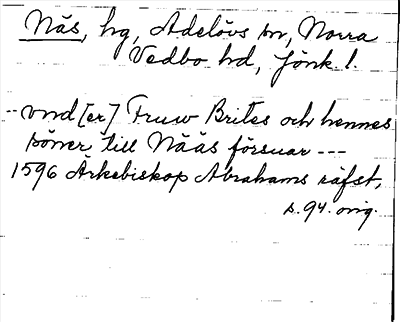 Näs, hg, Adelövs sn, Norra
Vedbo hd, Jönk. l.
-- vnd [er] Fruw Brites och hennes
böner till Nääs försuar ---
1596 Ärkebiskop Abrahams räfst,
s. 94. orig.